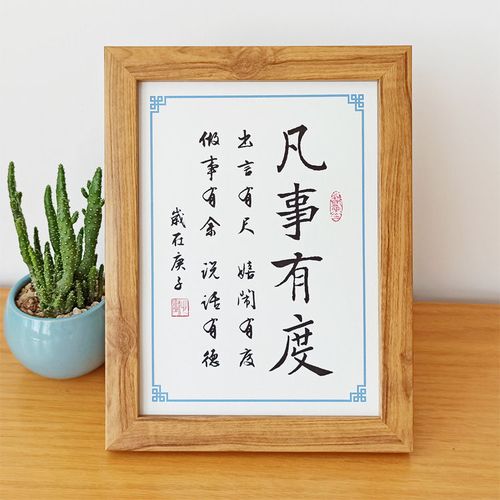 凡事有度
出言有尺 嬉闹有度
做事有余 说话有德
岁在庚子